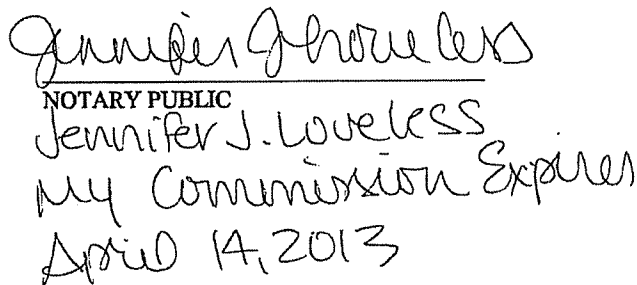 Jennifer J Loveless
NOTARY PUBLIC
Jennifer J. Loveless
My Commission Expires
April 14, 2013